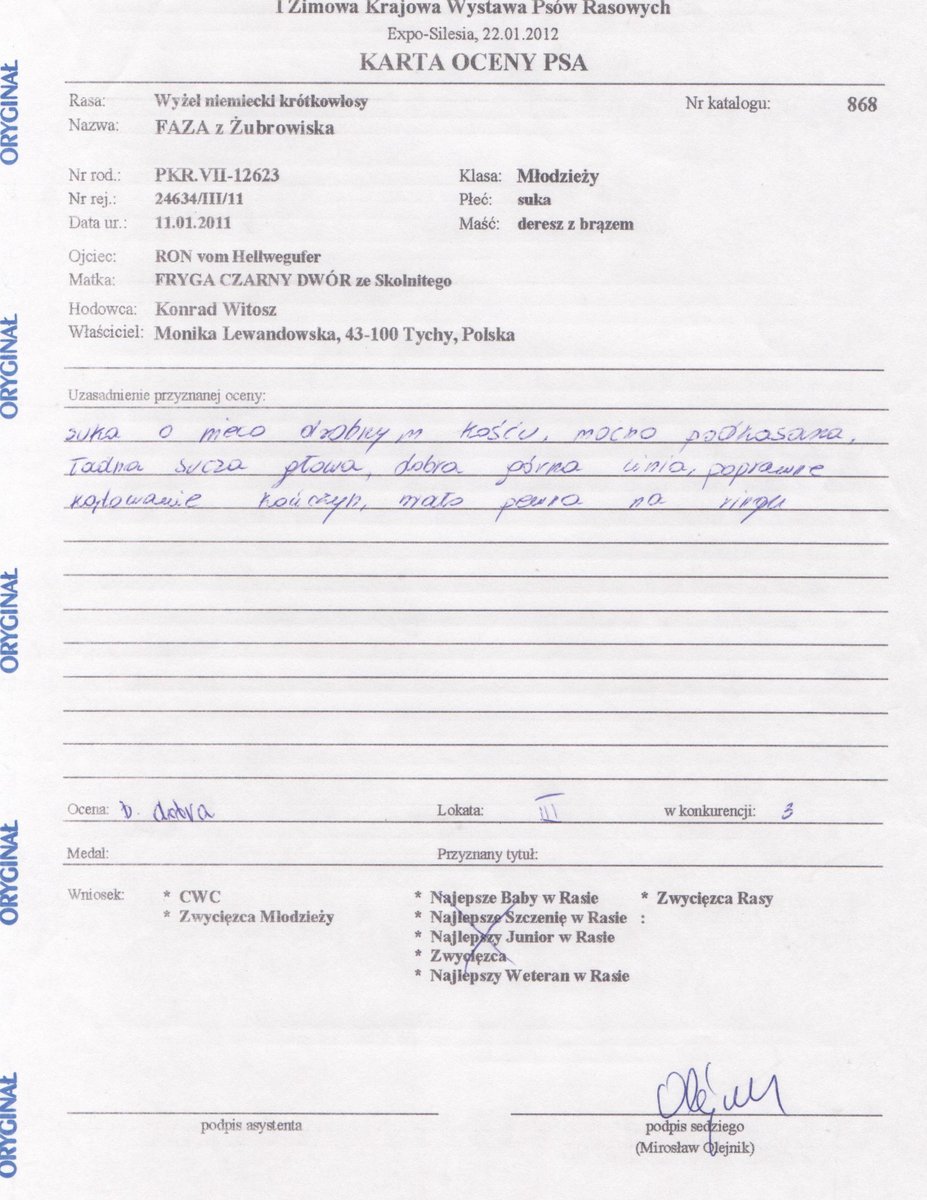 I Zimowa Krajowa Wystawa Psów Rasowych
Expo-Silesia, 22.01.2012
KARTA OCENY PSA
Rasa: Wyżeł niemiecki krótkowłosy Nr katalogu: 868
Nazwa: FAZA z Żubrowiska
Nr rod.: PKR.VII-12623 Klasa: Młodzieży
Nr rej.: 24634/III/11 Płeć: suka
Data ur.: 11.01.2011 Maść: deresz z brązem
Ojciec: RON vom Hellwegufer
Matka: FRYGA CZARNY DWÓR ze Skolnitego
Hodowca: Konrad Witosz
Właściciel: Monika Lewandowska, 43-100 Tychy, Polska
Uzasadnienie przyznanej oceny:
suka o nieco drobnym kośću, mocno podkasana,
ładna sucza głowa, dobra górna linia, poprawne
kątowanie kończyn, mało pewna na ringu
Ocena: b. dobra Lokata: III w konkurencji: 3
Medal: Przyznany tytuł:
Wniosek: * CWC * Najepsze Baby w Rasie * Zwycięzca Rasy
* Zwycięzca Młodzieży * Najlepsze Szczenię w Rasie :
* Najlepszy Junior w Rasie
* Zwycięzca
* Najlepszy Weteran w Rasie
Olejnik
podpis asystenta podpis sedziego
(Mirosław Olejnik)
ORYGINAŁ
ORYGINAŁ
ORYGINAŁ
ORYGINAŁ
ORYGINAŁ